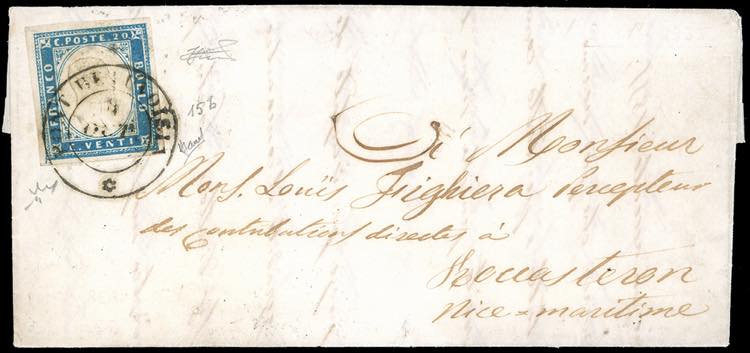 C. POSTE 20
FRANCO
BOLLO
C. VENTI
15b
A Monsieur
Mons. Louis Fighiera Percepteur
des contributions directes à
Rocasteron
Nice=maritime